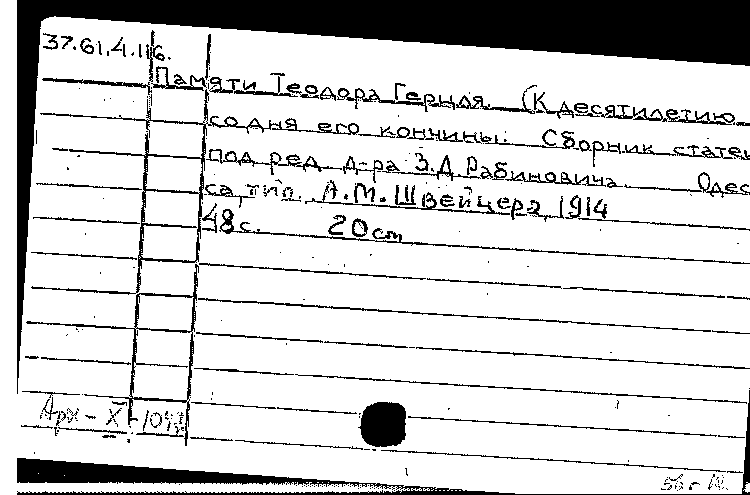 37.61.4.116.
Памяти Теодора Герцля. (К десятилетию
со дня его кончины. Сборник статей
под ред. д-ра З.Д.Рабиновича. Одес
са, тип. А.М.Швейцера, 1914
48с. 20cm
Арх - X -